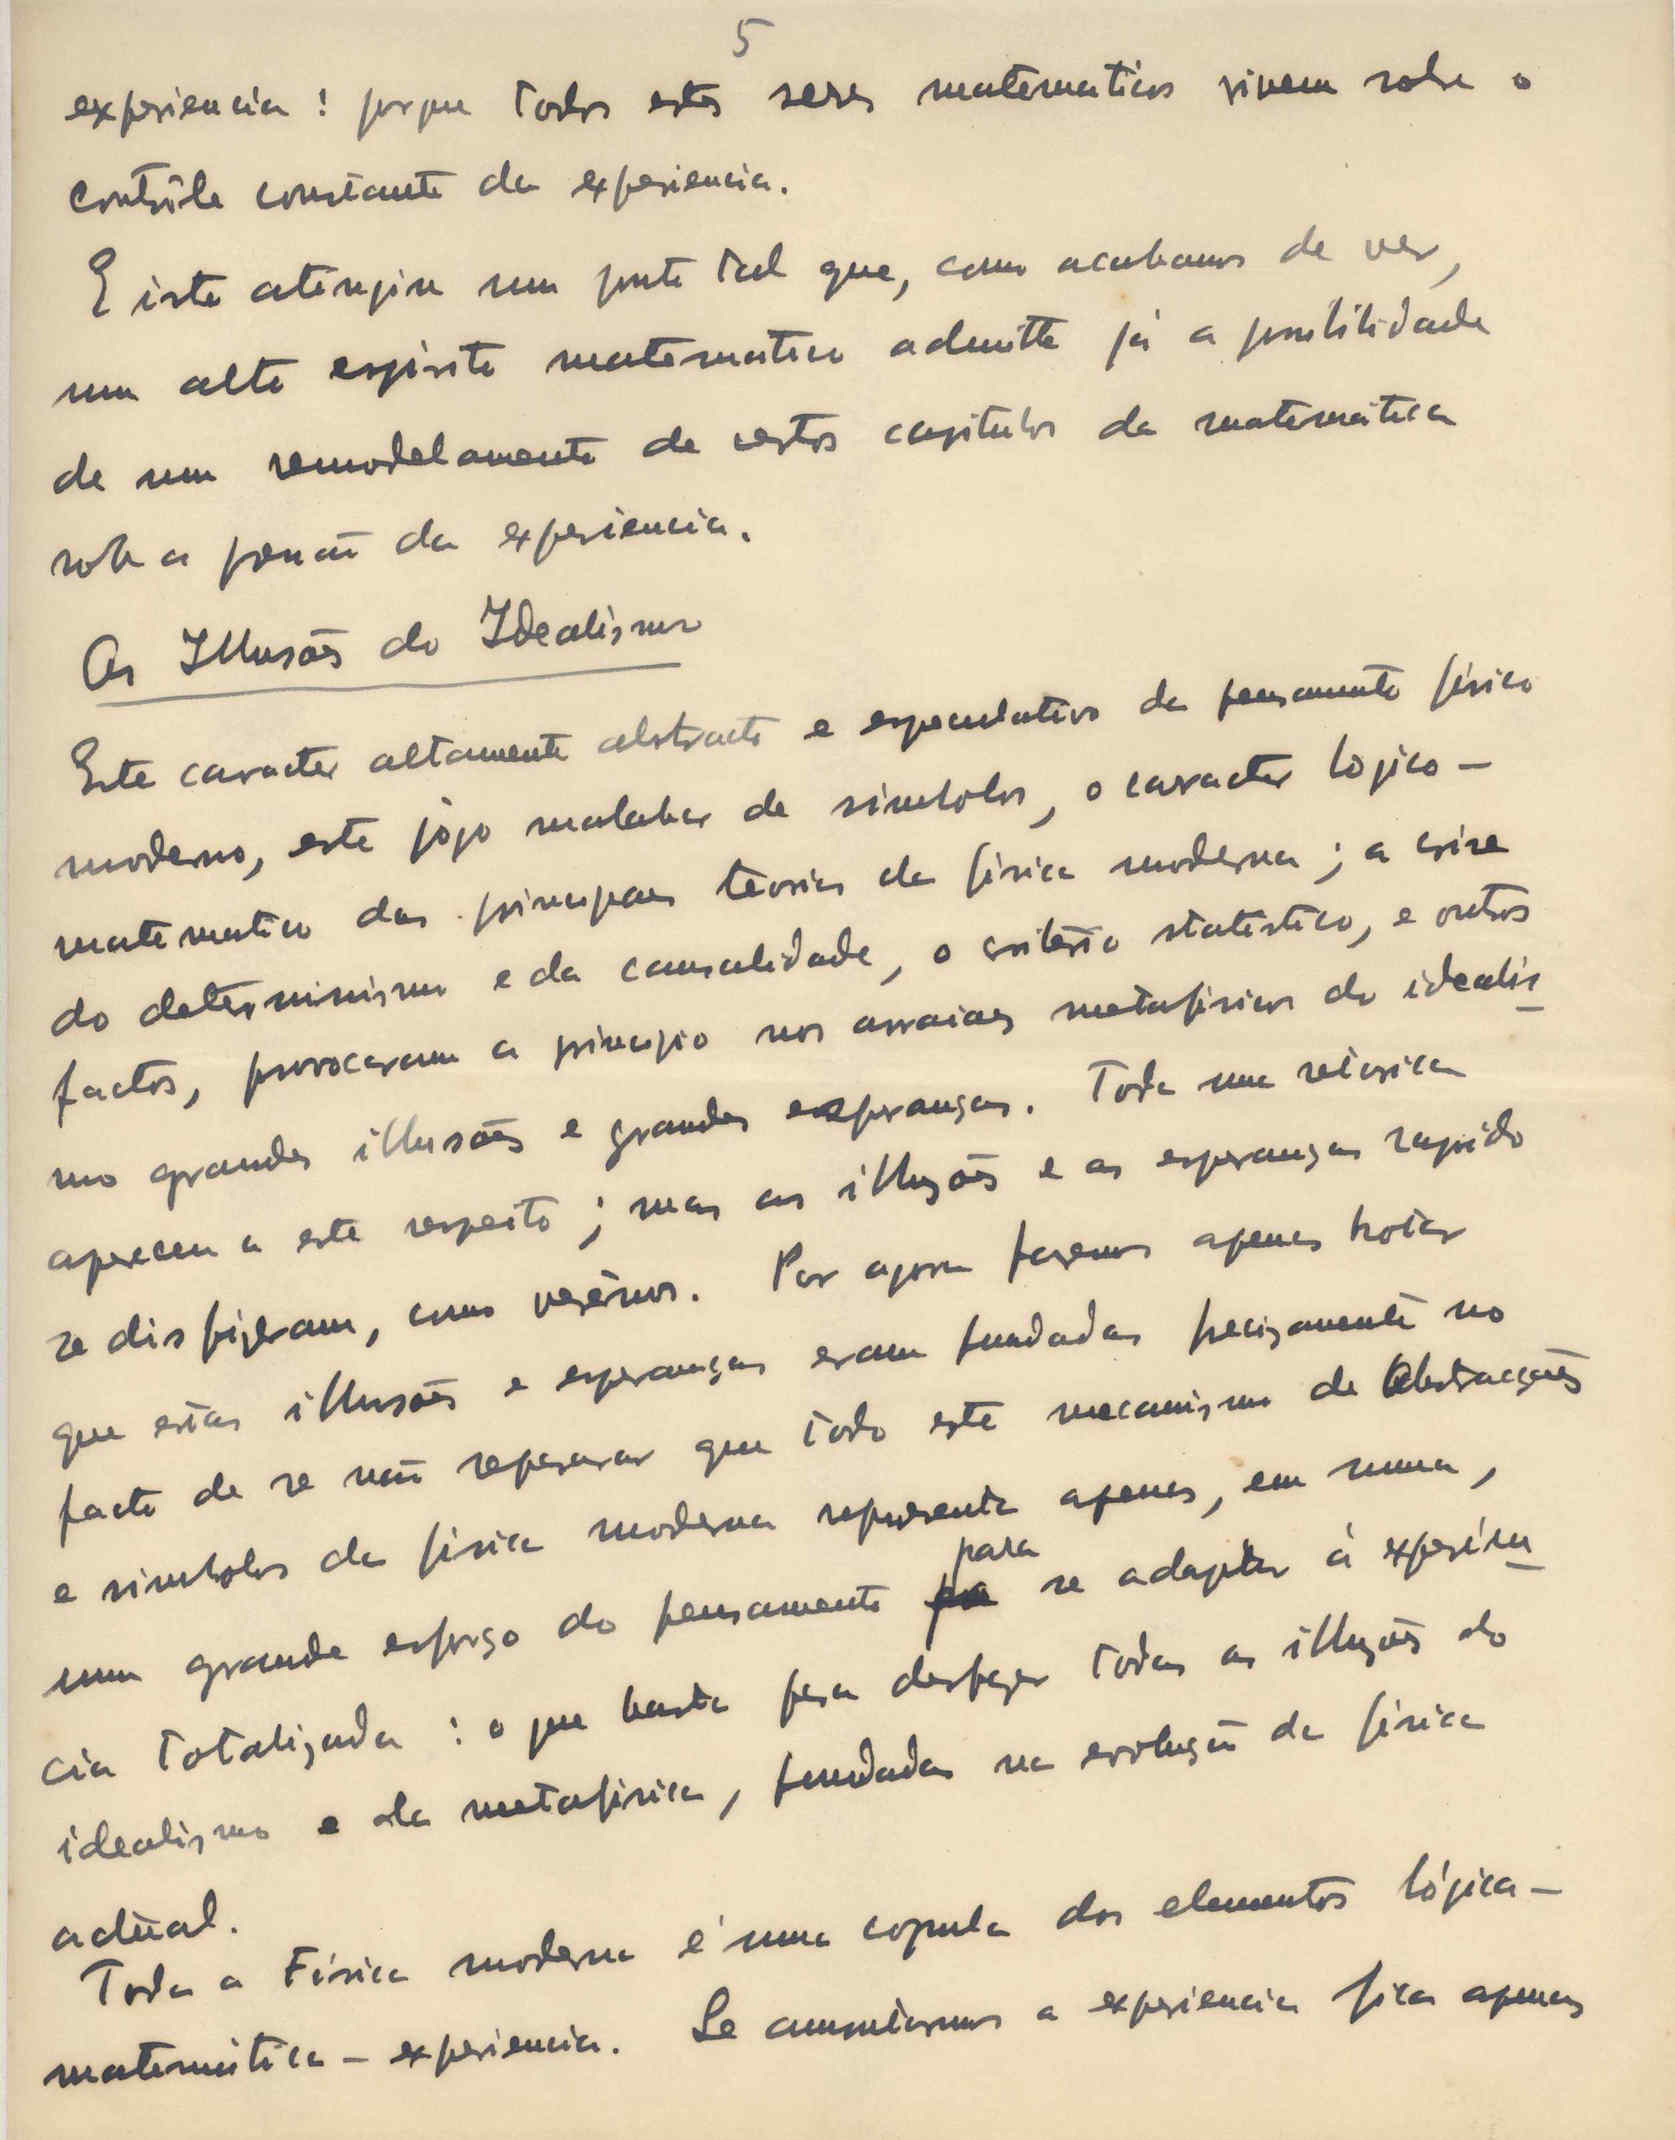 5
experiencia: porque todos estes seres matematicos vivem sobe o
contrôle constante da experiencia.
E isto atingiu um ponto tal que, como acabamos de ver,
um alto espirito matematico admitte já a possibilidade
de um remodelamento de certos capitulos da matemática
sob a pressão da experiencia.
As Illusões do Idealismo
Este caracter altamente abstracto e especulativo do pensamento fisico
moderno, este jôgo malabar de simbolos, o caracter lógico-
matematico das principaes teorias da fisica moderna; a crise
do determinismo e da causalidade, o critério statistico, e outros
factos, provocaram a principio nos arraiaes metafisicos do idealis
mo grandes illusões e grandes esperanças. Toda uma retorica
apareceu a este respeito; mas as illusões e as esperanças rapido
se disfizeram, como verêmos. Por agora faremos apenas notar
que estas illusões e esperanças eram fundadas precizamente no
facto de se não reparar que todo este mecanismo de Abstracções
e simbolos da fisica moderna representa apenas, em suma,
um grande esforço do pensamento para se adaptar á experien
cia totalizada: o que basta para desfazer todas as illusões do
idealismo e da metafisica, fundadas na evolução da fisica
actual.
Toda a Fisica moderna é uma copula dos elementos lógica-
matemática - experiencia. Se a experiencia fica apenas